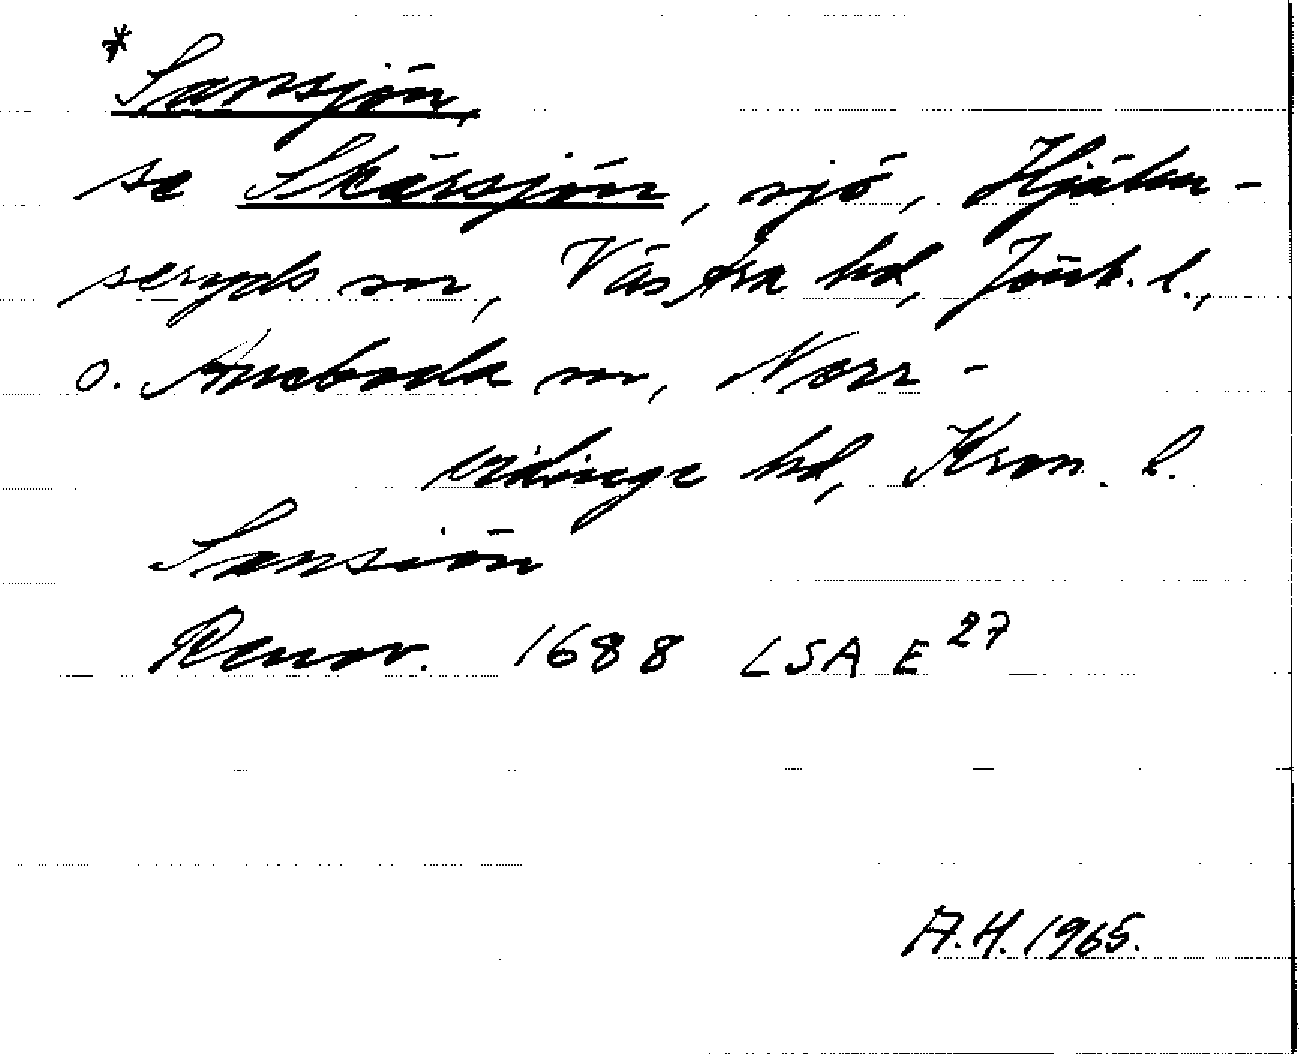 * Sansjön,
se Skärsjön, sjö, Hjälm-
seryds sn, Västra hd, Jönk. l.,
o. Aneboda sn, Norr-
vidinge hd, Kron. l.
Sansiön
Renov. 1688 LSA E 27
A.H. 1965.